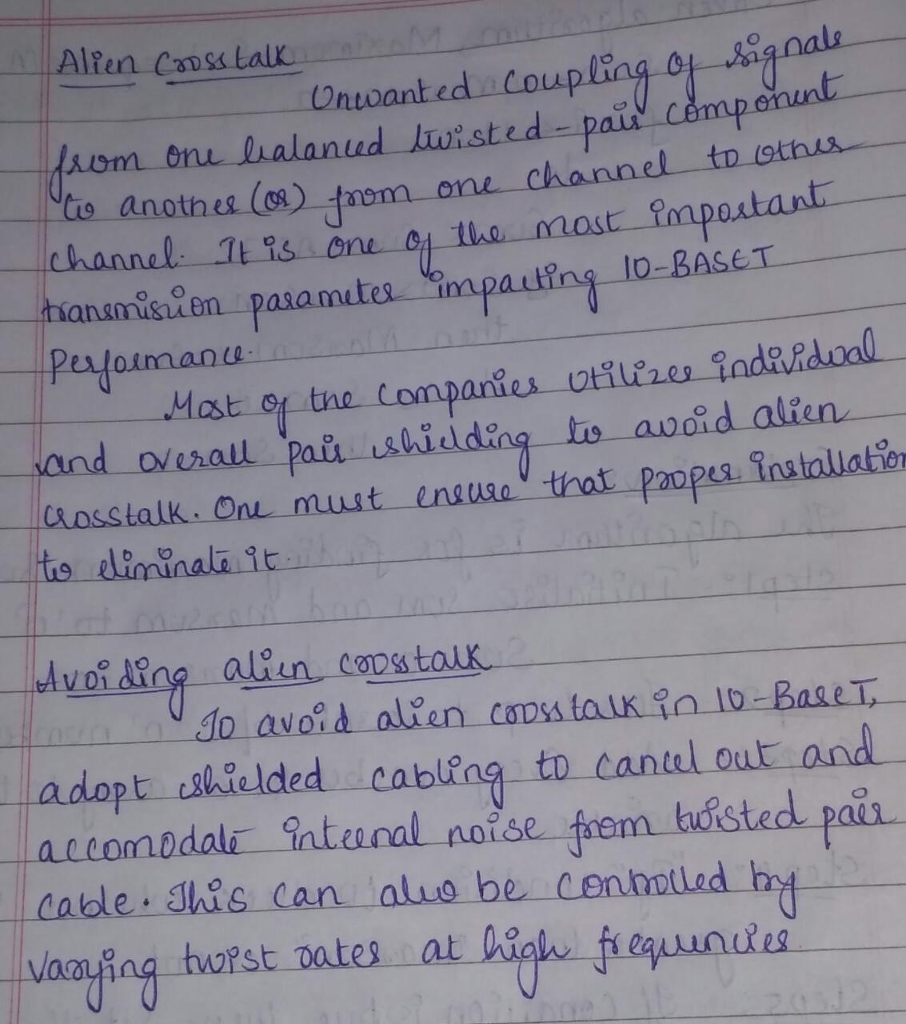 Alien Crosstalk
Unwanted coupling of signals
from one balanced twisted-pair component
to another (or) from one channel to other
channel. It is one of the most important
transmision parameter impacting 10-BASET
Performance.
Most of the companies utilizes individual
and overall pair shielding to avoid alien
crosstalk. One must ensure that proper installation
to eliminate it.
Avoiding alien crosstalk
To avoid alien crosstalk in 10-BaseT,
adopt shielded cabling to cancel out and
accomodate internal noise from twisted pair
cable. This can also be controlled by
varying twist rates at high frequencies.